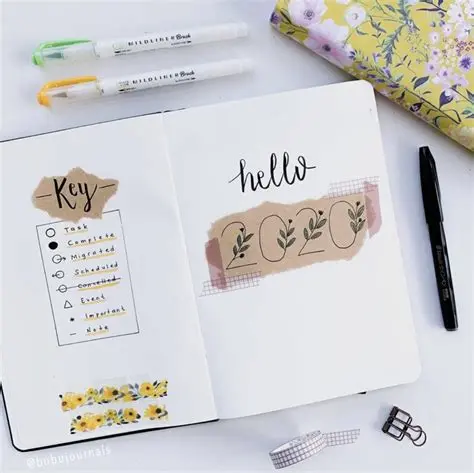 MILDLINER Brush
MILDLINER Brush
Key
Task
Complete
Migrated
Scheduled
Cancelled
Event
Important
Note
hello
2020
@bubujournals